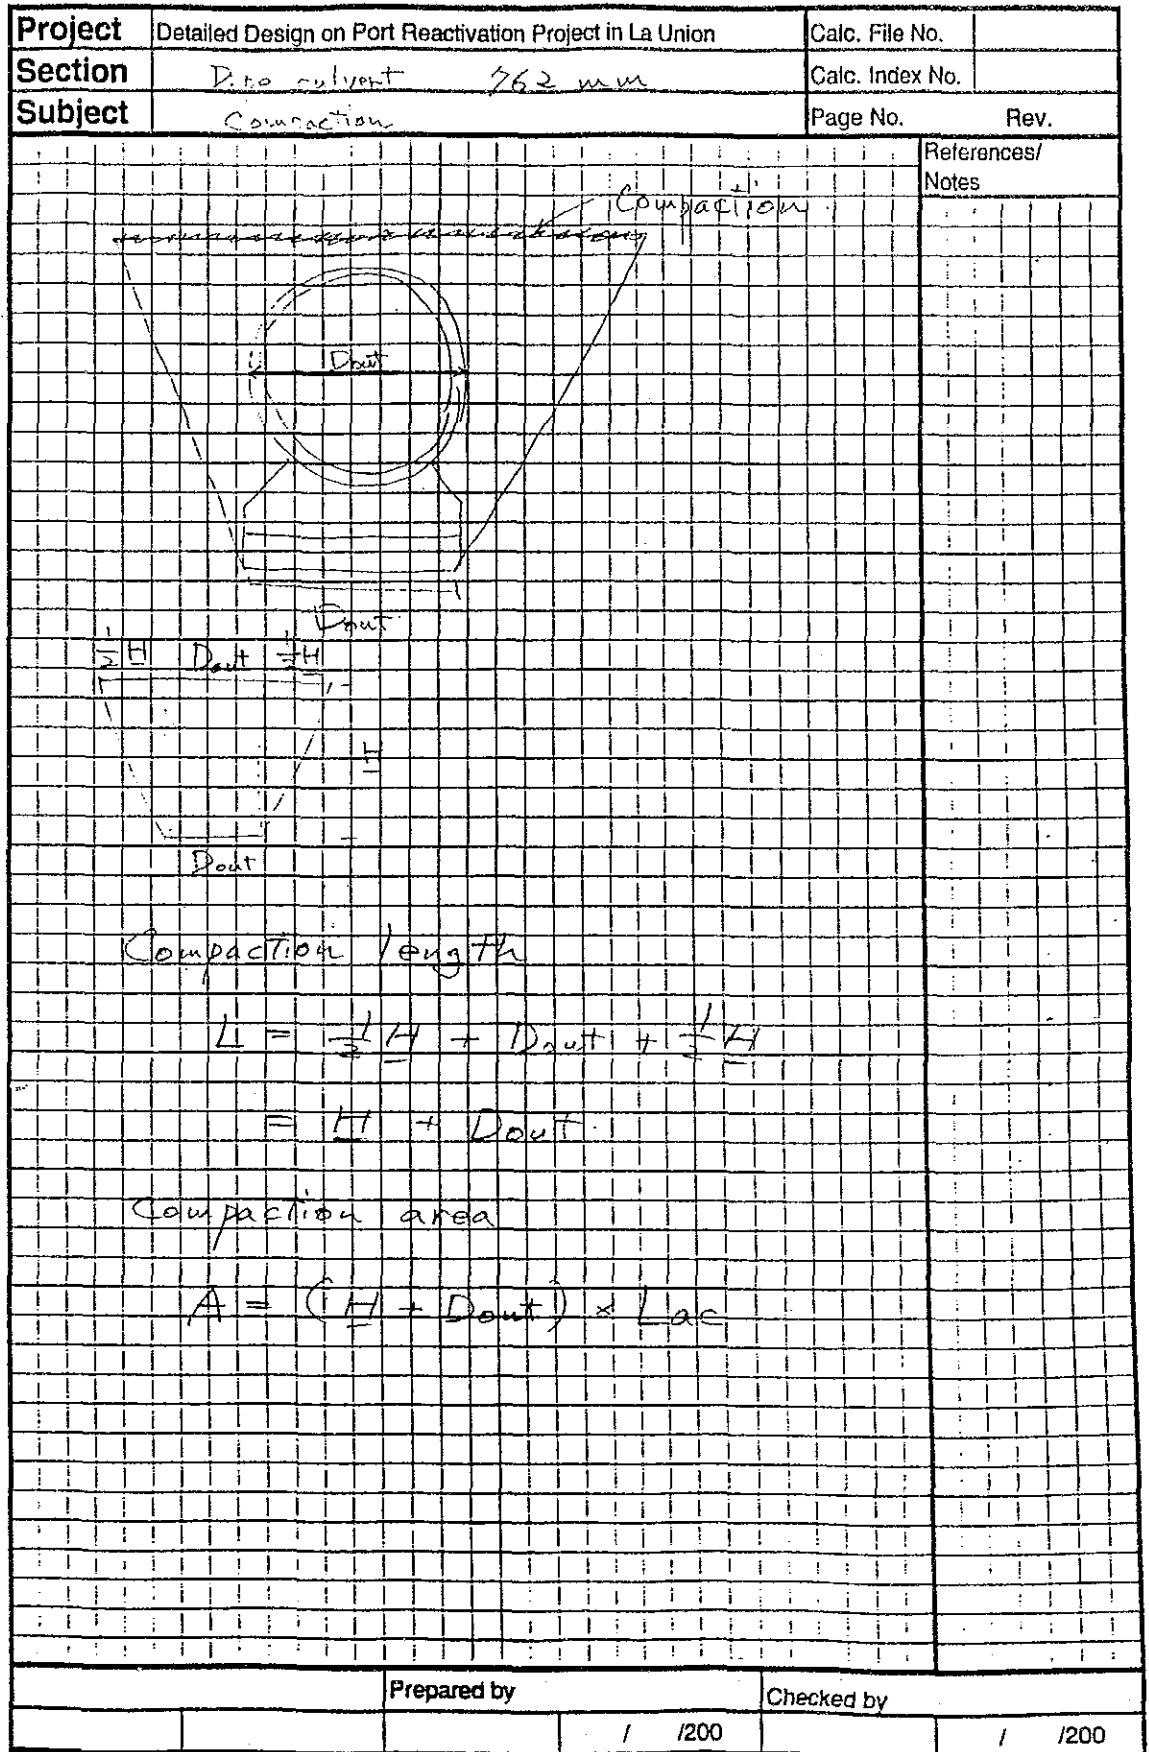 Project Detailed Design on Port Reactivation Project in La Union Calc. File No.
Section culvert 762 mm Calc. Index No.
Subject Compaction Page No. Rev.
References/
Notes
Compaction
Dout
Dout
1/2 H Dout 1/2 H
H
Dout
Compaction length
L = 1/2 H + Dout + 1/2 H
= H + Dout
Compaction area
A = (H + Dout) × Lac
Prepared by Checked by
/ /200 / /200